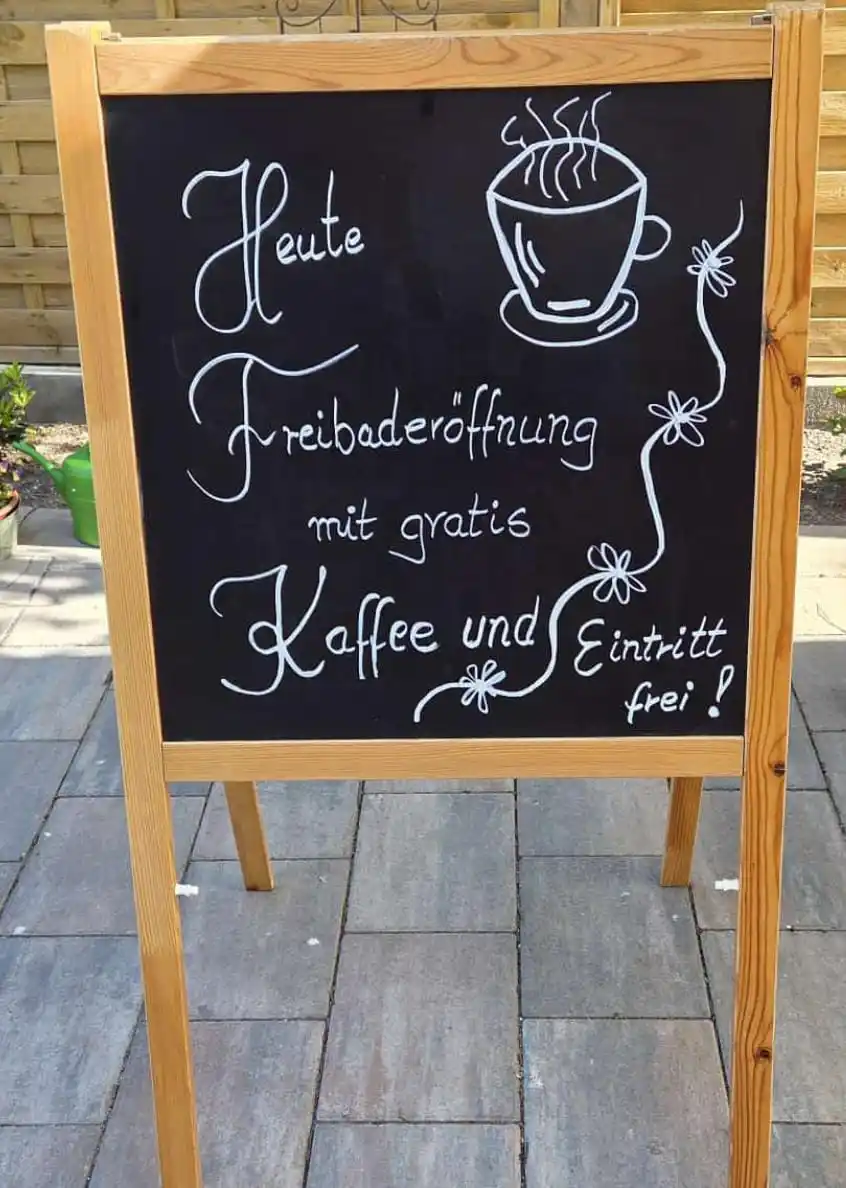 Heute
Freibaderöffnung
mit gratis
Kaffee und Eintritt
frei!